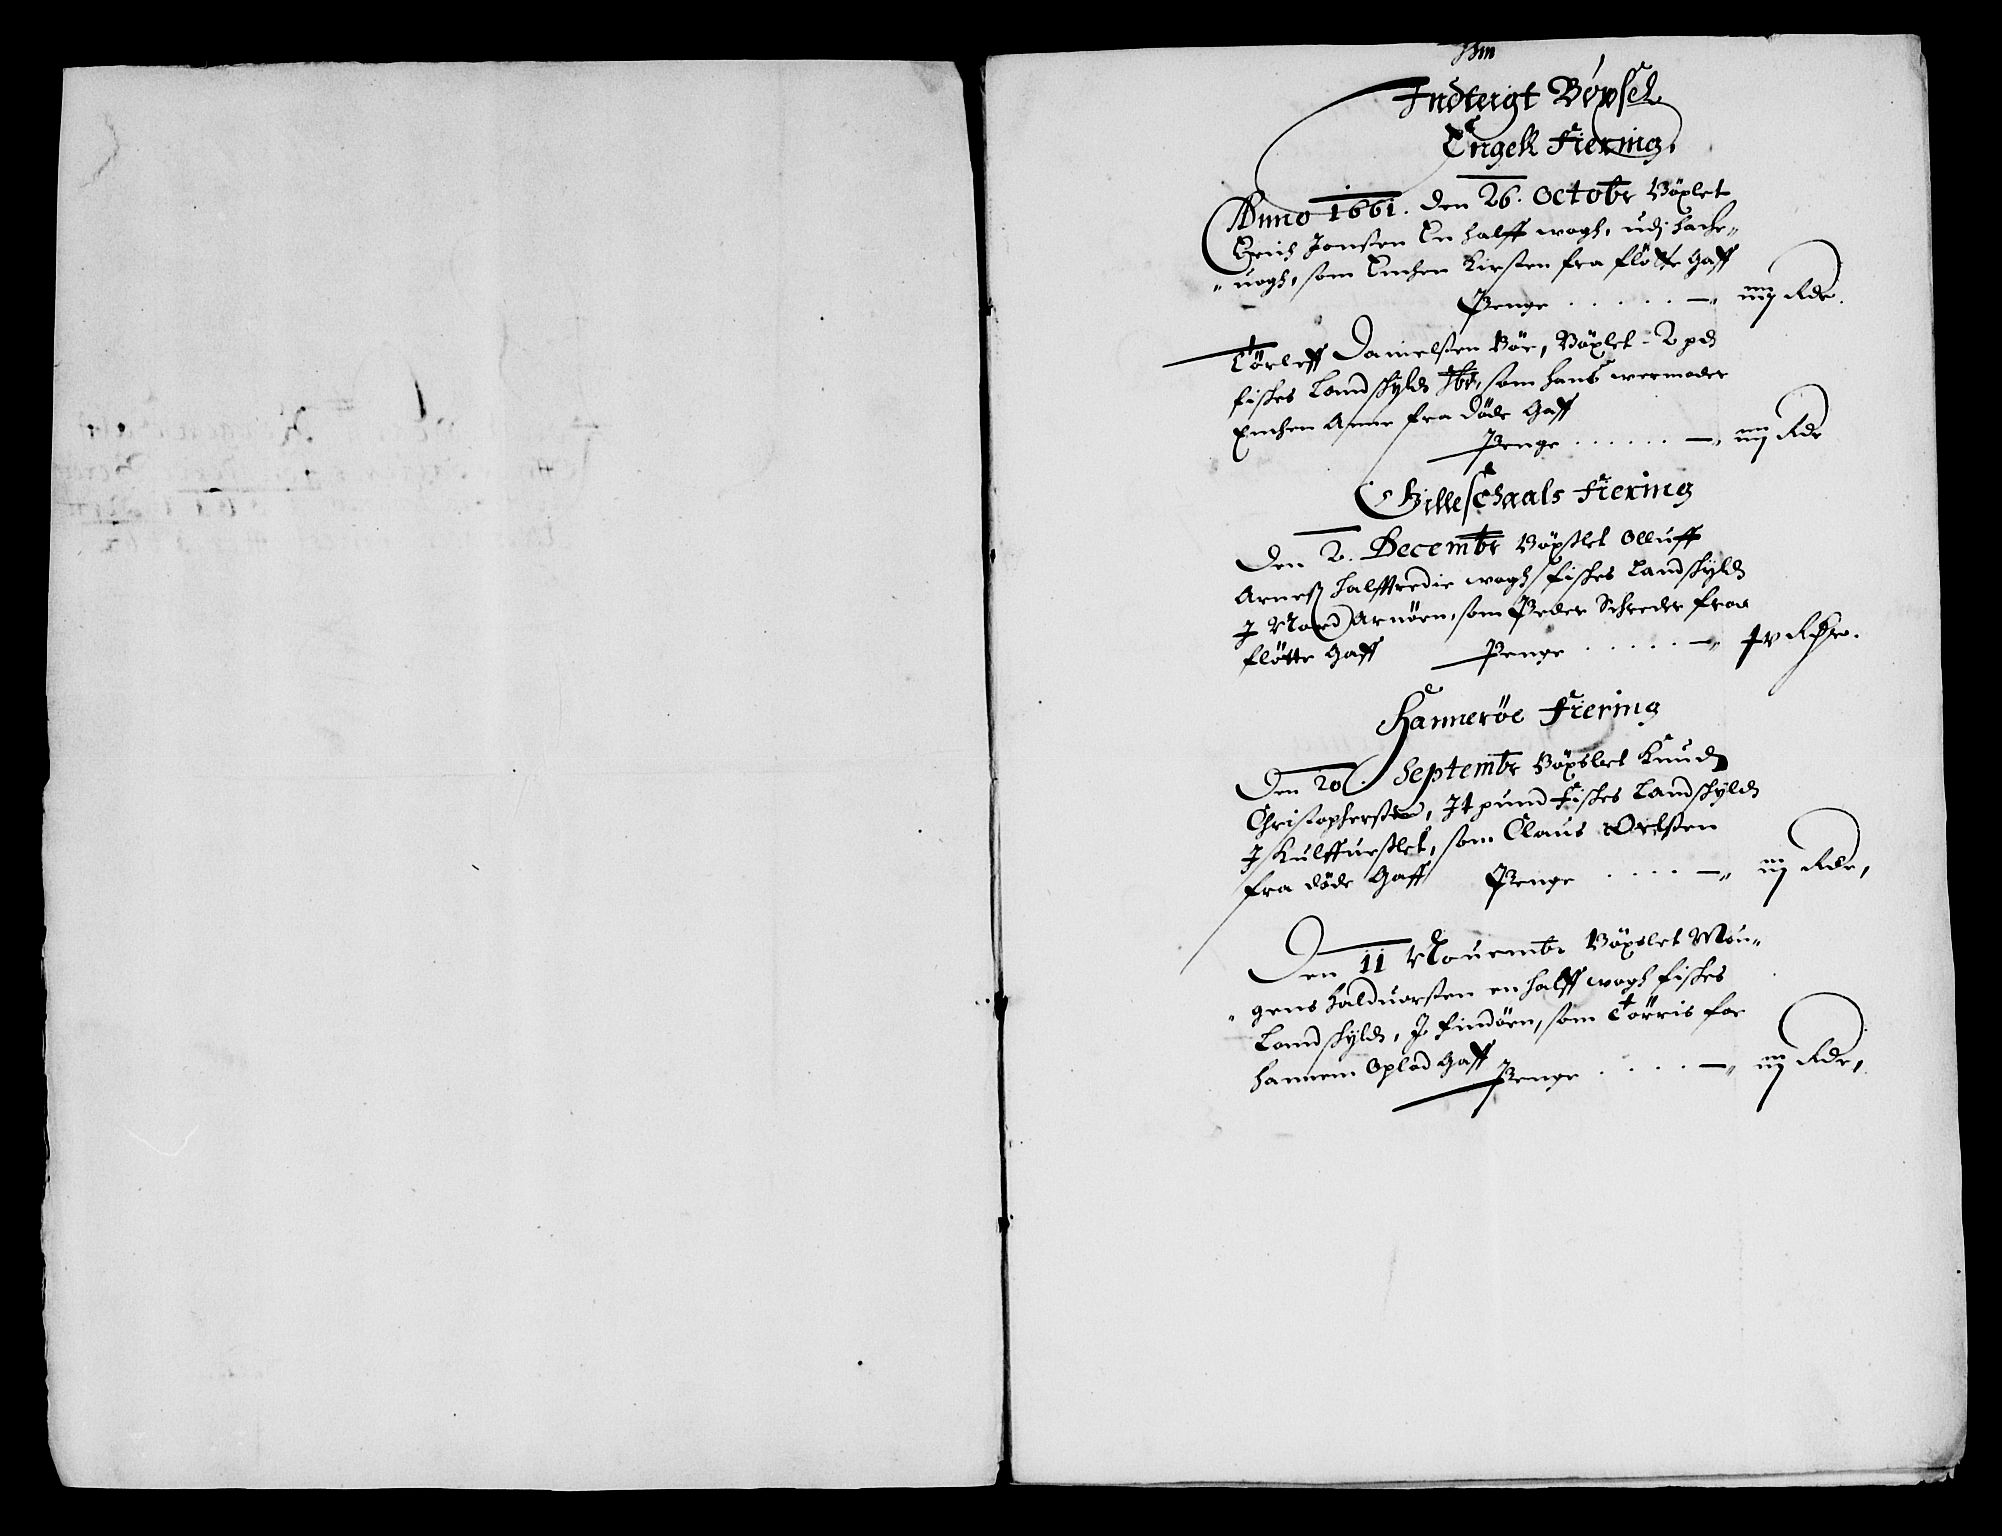 Indteigt Böxsel
Engeløe Fiering,
Anno 1661. den 26. Octobr Böxlet
Erich Jonsen En halff wogh, udj hache„
„uogh, som Enchen Kirsten fra flötte Gaff
Penge . . . . . — iiij Rdr.
Törleff Danielsen Böe, Böxlet - 2 pd
fiskes Landskyld, som hans wermoder
Enchen Anne fra döde Gaff
Penge . . . . . . — iiij Rdr
Gilleschaals Fiering
Den 2. Decembr Böxslet Olluff
Arnes halfftredie wogh fiskes Landskyld
J Nord Arnöen, som Peder Schreder fraa
flötte Gaff Penge . . . . . —
Hammeröe Fiering
Den 20. Septembr Böxslet Knud
Christophersen, It pund Fiskes Landskyld
J, som Claus Oelsen
fra döde Gaff Penge . . . . — iij Rdr,
Den 11 Nouembr Böxslet Mou„
„gens halduorsen en halff wogh fiskes
Landskyld, J Findöen, som Törris for
hannem Oplod Gaff
Penge . . . . — iij Rdr,